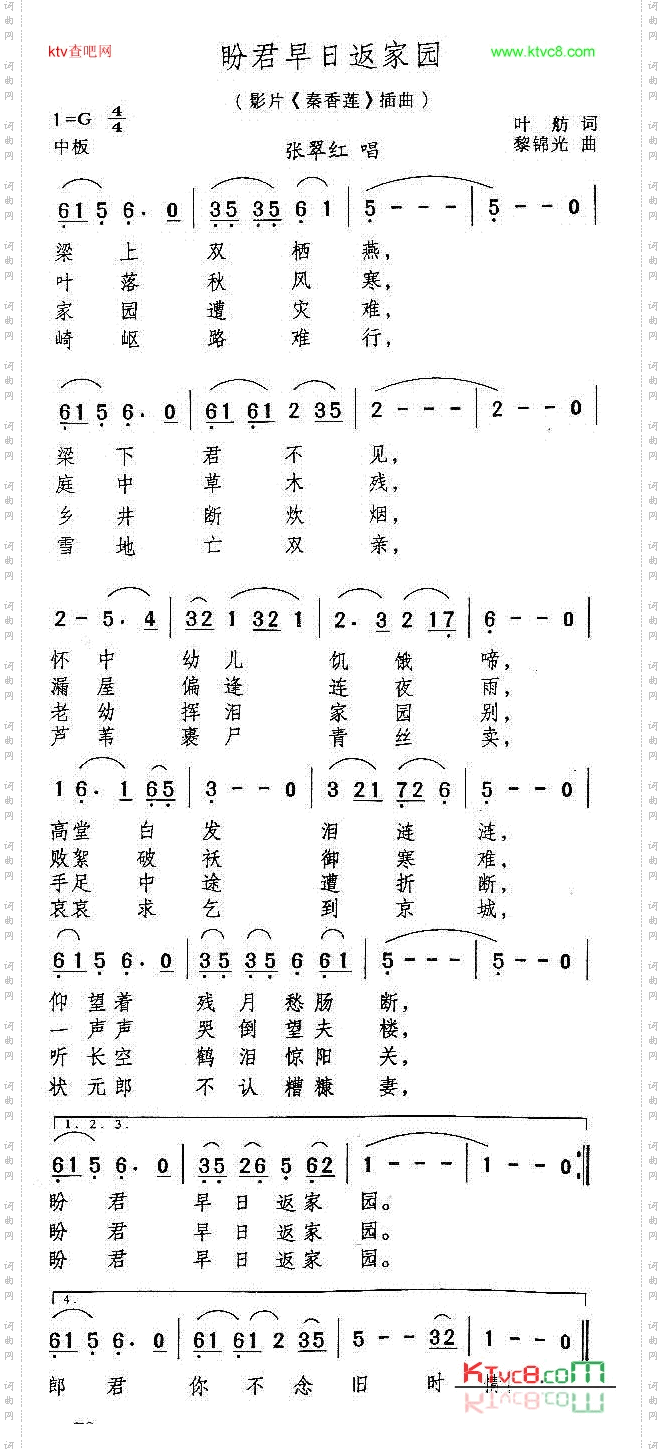 ktv查吧网
盼君早日返家园
www.ktvc8.com
（影片《秦香莲》插曲）
1=G 4/4
叶舫词
中板
张翠红 唱
黎锦光 曲
61 5 6· 0 | 35 35 6 1 | 5 - - - | 5 - - 0 |
梁上双栖燕，
叶落秋风寒，
家园遭灾难，
崎岖路难行，
61 5 6· 0 | 61 61 2 35 | 2 - - - | 2 - - 0 |
梁下君不见，
庭中草木残，
乡井断炊烟，
雪地亡双亲，
2 - 5· 4 | 32 1 32 1 | 2· 3 2 17 | 6 - - 0 |
怀中幼儿饥饿啼，
漏屋偏逢连夜雨，
老幼挥泪家园别，
芦苇裹尸青丝卖，
1 6· 1 65 | 3 - - 0 | 3 21 72 6 | 5 - - 0 |
高堂白发泪涟涟，
败絮破袄御寒难，
手足中途遭折断，
哀哀求乞到京城，
61 5 6· 0 | 35 35 6 61 | 5 - - - | 5 - - 0 |
仰望着残月愁肠断，
一声声哭倒望夫楼，
听长空鹤泪惊阳关，
状元郎不认糟糠妻，
1. 2. 3.
61 5 6· 0 | 35 26 5 62 | 1 - - - | 1 - - 0 :||
盼君早日返家园。
盼君早日返家园。
盼君早日返家园。
4.
61 5 6· 0 | 61 61 2 35 | 5 - - 32 | 1 - - 0
KTvc8.com
郎君你不念旧时情！